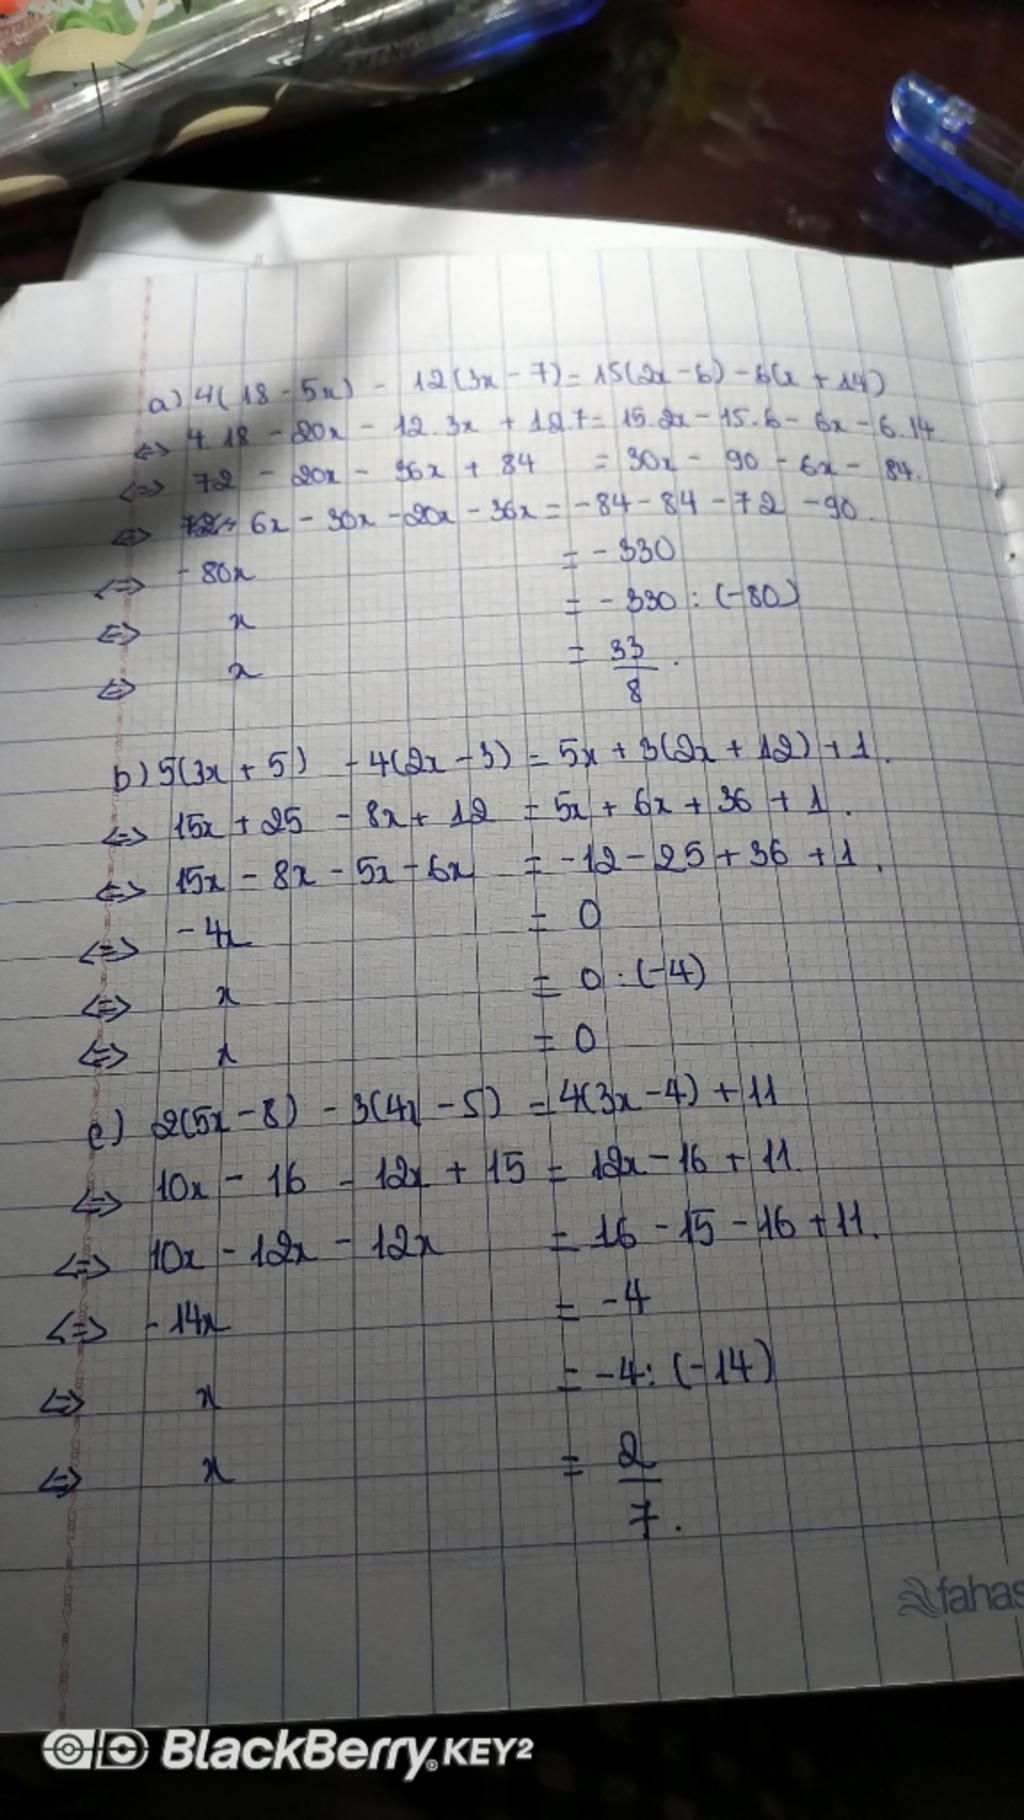 a) 4(18 - 5x) - 12(3x - 7) = 15(2x - 6) - 6(x + 14)
<=> 4.18 - 20x - 12.3x + 12.7 = 15.2x - 15.6 - 6x - 6.14
<=> 72 - 20x - 36x + 84 = 30x - 90 - 6x - 84.
<=> 6x - 30x - 20x - 36x = - 84 - 84 - 72 - 90.
<=> - 80x = - 330
<=> x = - 330 : (-80)
<=> x = 33/8.
b) 5(3x + 5) - 4(2x - 3) = 5x + 3(2x + 12) + 1.
<=> 15x + 25 - 8x + 12 = 5x + 6x + 36 + 1.
<=> 15x - 8x - 5x - 6x = - 12 - 25 + 36 + 1.
<=> - 4x = 0
<=> x = 0 : (-4)
<=> x = 0
c) 2(5x - 8) - 3(4x - 5) = 4(3x - 4) + 11
<=> 10x - 16 - 12x + 15 = 12x - 16 + 11.
<=> 10x - 12x - 12x = 16 - 15 - 16 + 11.
<=> - 14x = - 4
<=> x = - 4 : (-14)
<=> x = 2/7.
fahas
BlackBerry KEY2